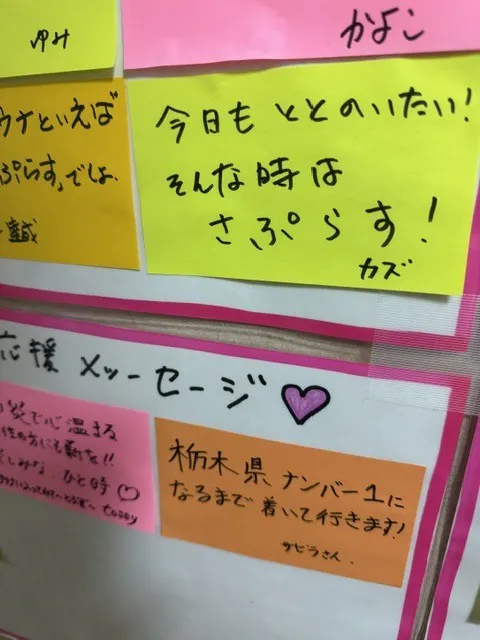 ゆみ
かよこ
ウナといえば
ぷらす」でしょ、
今日もととのいたい!
そんな時は
さぷらす!
カズ
応援メッセージ
炎で心温まる
ひと時♡
today
栃木県ナンバー1に
なるまで着いて行きます!
タビラさん